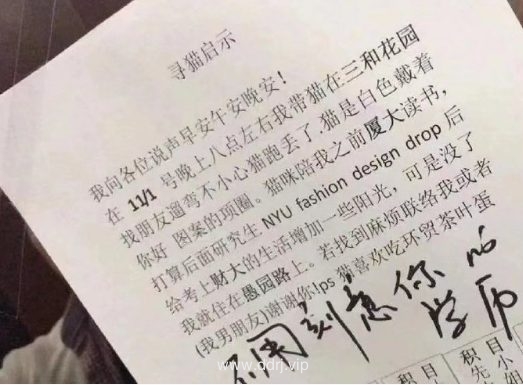 寻猫启示
我向各位说声早安午安晚安!
在 11/1 号晚上八点左右我带猫在三和花园
找朋友遛弯不小心猫跑丢了.猫是白色戴着
你好 图案的项圈。猫咪陪我之前厦大读书,
打算后面研究生 NYU fashion design drop 后
给考上财大的生活增加一些阳光,可是没了
我就住在愚园路上。若找到麻烦联络我或者
(我男朋友)谢谢你!ps 猫喜欢吃环贸茶叶蛋
刻意 你
学历
积目
积目
www.ddrj.vip